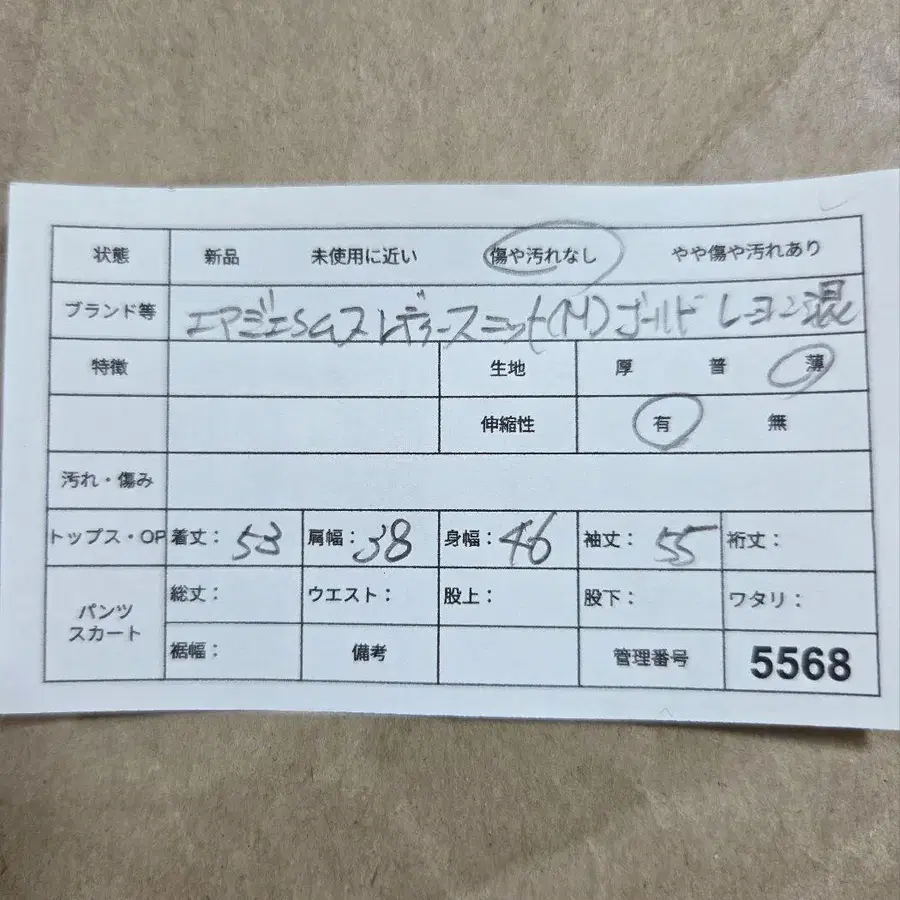 状態 新品 未使用に近い 傷や汚れなし やや傷や汚れあり
ブランド等 レディースニット(M)ゴールド レーヨン混
特徴 生地 厚 普 薄
伸縮性 有 無
汚れ・傷み
トップス・OP 着丈: 53 肩幅: 38 身幅: 46 袖丈: 55 裄丈:
パンツ スカート 総丈: ウエスト: 股上: 股下: ワタリ:
裾幅: 備考 管理番号 5568